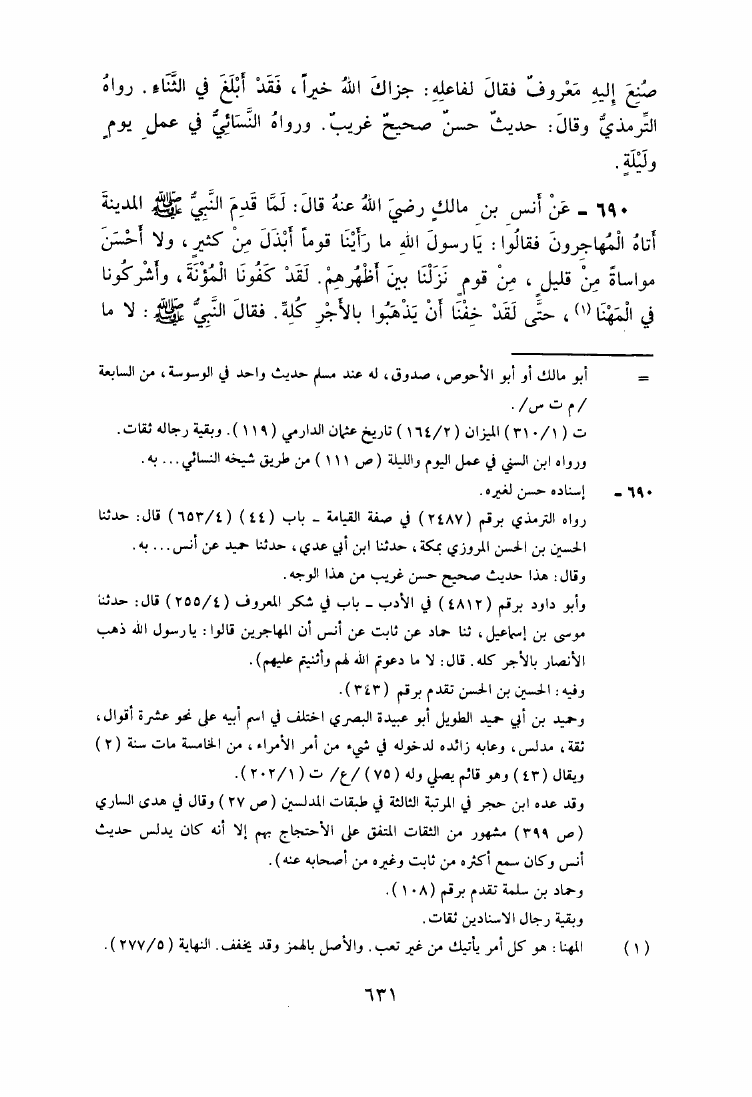 صُنِعَ إليهِ مَعْروفٌ فقالَ لفاعلِهِ: جزاكَ اللهُ خيراً، فَقَدْ أبْلَغَ في الثَّنَاءِ. رواهُ
التِّرمذيُّ وقالَ: حديثٌ حسنٌ صحيحٌ غريبٌ. ورواهُ النَّسَائِيُّ في عملِ يومٍ
ولَيْلَةٍ.
٦٩٠ - عَنْ أنس بنِ مالكٍ رضيَ اللهُ عنهُ قالَ: لَمَّا قَدِمَ النَّبيُّ ﷺ المدينةَ
أتاهُ الْمُهاجرونَ فقالُوا: يَارسولَ اللهِ ما رَأيْنَا قوماً أبْذَلَ مِنْ كثيرٍ، ولا أحْسَنَ
مواساةً مِنْ قليلٍ، مِنْ قومٍ نَزَلْنَا بينَ أظْهُرِهِمْ. لَقَدْ كَفُونَا الْمُؤْنَةَ، وأشْركُونا
في الْمَهْنَا(١)، حتَّى لَقَدْ خِفْنَا أنْ يَذْهَبُوا بالأجْرِ كُلِّهِ. فقالَ النَّبيُّ ﷺ: لا ما
= أبو مالك أو أبو الأحوص، صدوق، له عند مسلم حديث واحد في الوسوسة، من السابعة
/م ت س/.
ت (٣١٠/١) الميزان (١٦٤/٢) تاريخ عثمان الدارمي (١١٩). وبقية رجاله ثقات.
ورواه ابن السني في عمل اليوم والليلة (ص ١١١) من طريق شيخه النسائي... به.
٦٩٠ - إسناده حسن لغيره.
رواه الترمذي برقم (٢٤٨٧) في صفة القيامة - باب (٤٤) (٦٥٣/٤) قال: حدثنا
الحسين بن الحسن المروزي بمكة، حدثنا ابن أبي عدي، حدثنا حميد عن أنس... به.
وقال: هذا حديث صحيح حسن غريب من هذا الوجه.
وأبو داود برقم (٤٨١٢) في الأدب - باب في شكر المعروف (٢٥٥/٤) قال: حدثنا
موسى بن إسماعيل، ثنا حماد عن ثابت عن أنس أن المهاجرين قالوا: يارسول الله ذهب
الأنصار بالأجر كله. قال: لا ما دعوتم الله لهم وأثنيتم عليهم).
وفيه: الحسين بن الحسن تقدم برقم (٣٤٣).
وحميد بن أبي حميد الطويل أبو عبيدة البصري اختلف في اسم أبيه على نحو عشرة أقوال،
ثقة، مدلس، وعابه زائده لدخوله في شيء من أمر الأمراء، من الخامسة مات سنة (٢)
ويقال (٤٣) وهو قائم يصلي وله (٧٥) /ع/ ت (٢٠٢/١).
وقد عده ابن حجر في المرتبة الثالثة في طبقات المدلسين (ص ٢٧) وقال في هدى الساري
(ص ٣٩٩) مشهور من الثقات المتفق على الأحتجاج بهم إلا أنه كان يدلس حديث
أنس وكان سمع أكثره من ثابت وغيره من أصحابه عنه).
وحماد بن سلمة تقدم برقم (١٠٨).
وبقية رجال الاسنادين ثقات.
(١) المهنا: هو كل أمر يأتيك من غير تعب. والأصل بالهمز وقد يخفف. النهاية (٢٧٧/٥).
٦٣١